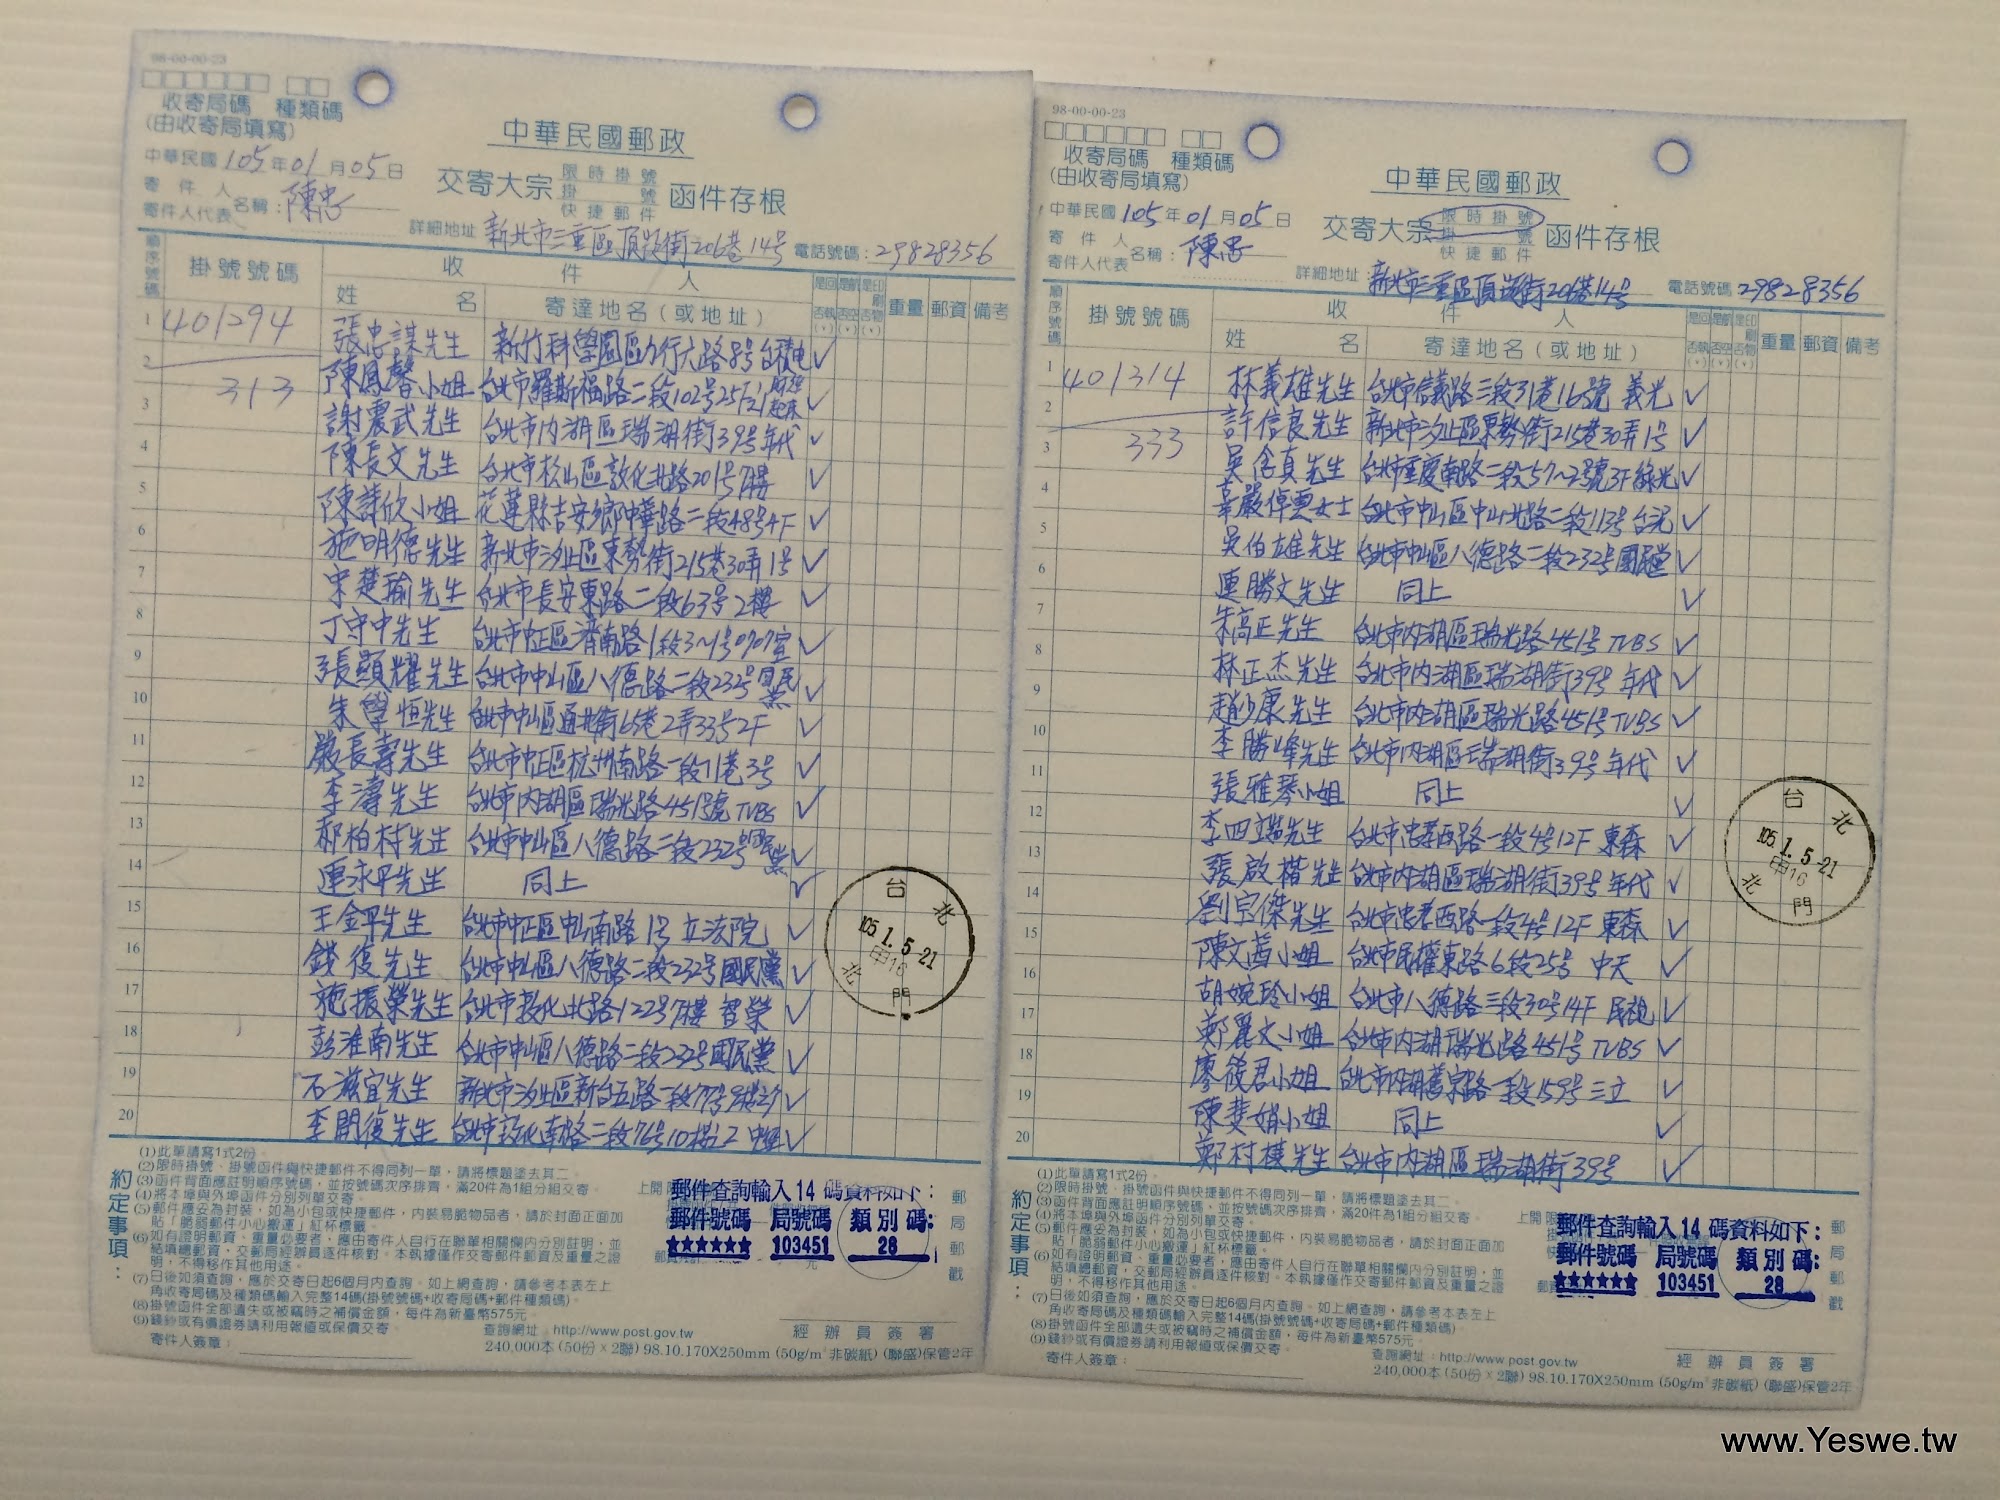 98-00-00-23
收寄局碼 種類碼
(由收寄局填寫)
中華民國郵政
中華民國105年01月05日
交寄大宗 限時掛號 掛號 快捷郵件 函件存根
寄件人
寄件人代表 名稱:陳忠
詳細地址 新北市三重區頂崁街206巷14号 電話號碼:29828356
順序號碼 掛號號碼 收件人 是否回執(v) 是否航空(v) 是否印刷物(v) 重量 郵資 備考
姓名 寄達地名(或地址)
1 401294 張忠謀先生 新竹科學園區力行六路8号台積电 ✓
2 陳鳳馨小姐 台北市羅斯福路二段102号25F之1 ✓
3 313 謝震武先生 台北市內湖區瑞湖街39号年代 ✓
4 陳長文先生 台北市松山區敦化北路201号7樓 ✓
5 陳諱欣小姐 花蓮縣吉安鄉中華路二段48号4F ✓
6 施明德先生 新北市汐止區東勢街215巷30弄1号 ✓
7 宋楚瑜先生 台北市長安東路二段63号2樓 ✓
8 丁守中先生 台北市中正區濟南路1段3~1号0707室 ✓
9 張顯耀先生 台北市中山區八德路二段232号國民黨 ✓
10 朱學恒先生 台北市中山區通北街65巷2弄33号2F ✓
11 嚴長壽先生 台北市中正區杭州南路一段11巷3号 ✓
12 李濤先生 台北市內湖區瑞光路451號TVBS ✓
13 郝柏村先生 台北市中山區八德路二段232号國民黨 ✓
14 連永平先生 同上 ✓
15 王金平先生 台北市中正區中山南路1号立法院 ✓
16 錢復先生 台北市中山區八德路二段232号國民黨 ✓
17 施振榮先生 台北市敦化北路122号7樓 智榮 ✓
18 彭淮南先生 台北市中山區八德路二段232号國民黨 ✓
19 石滋宜先生 新北市汐止區新台五路一段77号 ✓
20 李開復先生 台北市敦化南路二段76号10樓之2 ✓
約定事項:
(1)此單請寫1式2份。
(2)限時掛號、掛號函件與快捷郵件不得同列一單,請將標題塗去其二。
(3)函件背面應註明順序號碼,並按號碼次序排齊,滿20件為1組分組交寄。
(4)將本埠與外埠函件分別列單交寄。
(5)郵件應妥為封裝,如為小包或快捷郵件,內裝易脆物品者,請於封面正面加
貼「脆弱郵件小心搬運」紅杯標籤。
(6)如有證明郵資、重量必要者,應由寄件人自行在聯單相關欄內分別註明,並
結填總郵資,交郵局經辦員逐件核對。本執據僅作交寄郵件郵資及重量之證
明,不得移作其他用途。
(7)日後如須查詢,應於交寄日起6個月內查詢。如上網查詢,請參考本表左上
角收寄局碼及種類碼輸入完整14碼(掛號號碼+收寄局碼+郵件種類碼)。
(8)掛號函件全部遺失或被竊時之補償金額,每件為新臺幣575元。
(9)錢鈔或有價證券請利用報值或保價交寄。
寄件人簽章:
郵件查詢輸入14 碼資料如下:
郵件號碼 局號碼 類別碼:
★★★★★★ 103451 28
郵局郵戳
經辦員簽署
查詢網址:http://www.post.gov.tw
240,000本(50份×2聯)98.10.170X250mm(50g/m²非碳紙)(聯盛)保管2年
台北
105.1.5-21
甲16
北門
98-00-00-23
收寄局碼 種類碼
(由收寄局填寫)
中華民國郵政
中華民國105年01月05日
交寄大宗 限時掛號 掛號 快捷郵件 函件存根
寄件人
寄件人代表 名稱:陳忠
詳細地址:新北市三重區頂崁街206巷14号 電話號碼:29828356
順序號碼 掛號號碼 收件人 是否回執(v) 是否航空(v) 是否印刷物(v) 重量 郵資 備考
姓名 寄達地名(或地址)
1 401314 林義雄先生 台北市信義路三段31巷16號 義光 ✓
2 許信良先生 新北市汐止區東勢街215巷30弄1号 ✓
3 333 吳念真先生 台北市重慶南路二段57~2號3F綠光 ✓
4 辜嚴倬雲女士 台北市中山區中山北路二段113号台泥 ✓
5 吳伯雄先生 台北市中山區八德路二段232号國民黨 ✓
6 連勝文先生 同上 ✓
7 朱高正先生 台北市內湖區瑞光路451号TVBS ✓
8 林正杰先生 台北市內湖區瑞湖街39号年代 ✓
9 趙少康先生 台北市內湖區瑞光路451号TVBS ✓
10 李勝峰先生 台北市內湖區瑞湖街39号年代 ✓
11 張雅琴小姐 同上 ✓
12 李四端先生 台北市忠孝西路一段4号12F東森 ✓
13 張啟楷先生 台北市內湖區瑞湖街39号年代 ✓
14 劉宝傑先生 台北市忠孝西路一段4号12F東森 ✓
15 陳文茜小姐 台北市民權東路6段25号 中天 ✓
16 胡婉玲小姐 台北市八德路三段30号14F民視 ✓
17 鄭麗文小姐 台北市內湖瑞光路451号TVBS ✓
18 廖筱君小姐 台北市內湖舊宗路一段159号三立 ✓
19 陳斐娟小姐 同上 ✓
20 鄭村棋先生 台北市內湖區瑞湖街39号 ✓
約定事項:
(1)此單請寫1式2份。
(2)限時掛號、掛號函件與快捷郵件不得同列一單,請將標題塗去其二。
(3)函件背面應註明順序號碼,並按號碼次序排齊,滿20件為1組分組交寄。
(4)將本埠與外埠函件分別列單交寄。
(5)郵件應妥為封裝,如為小包或快捷郵件,內裝易脆物品者,請於封面正面加
貼「脆弱郵件小心搬運」紅杯標籤。
(6)如有證明郵資、重量必要者,應由寄件人自行在聯單相關欄內分別註明,並
結填總郵資,交郵局經辦員逐件核對。本執據僅作交寄郵件郵資及重量之證
明,不得移作其他用途。
(7)日後如須查詢,應於交寄日起6個月內查詢。如上網查詢,請參考本表左上
角收寄局碼及種類碼輸入完整14碼(掛號號碼+收寄局碼+郵件種類碼)。
(8)掛號函件全部遺失或被竊時之補償金額,每件為新臺幣575元。
(9)錢鈔或有價證券請利用報值或保價交寄。
寄件人簽章:
郵件查詢輸入14 碼資料如下:
郵件號碼 局號碼 類別碼:
★★★★★★ 103451 28
郵局郵戳
經辦員簽署
查詢網址:http://www.post.gov.tw
240,000本(50份×2聯)98.10.170X250mm(50g/m²非碳紙)(聯盛)保管2年
台北
105.1.5-21
甲16
北門
www.Yeswe.tw